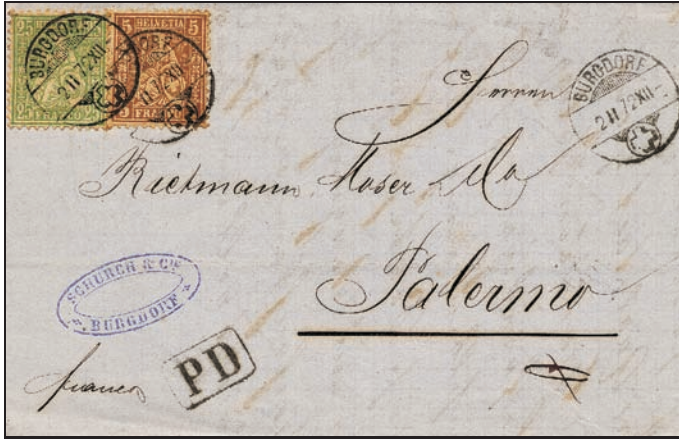 25 25
FRANCO
25 25
BURGDORF
2 II 72 XII
5 HELVETIA 5
FRANCO
5
DORF
II 72 XII
BURGDORF
2 II 72 XII
Herren
Rietmann Moser & Co
Palermo
SCHÜRCH & Cie
BURGDORF
franco
PD